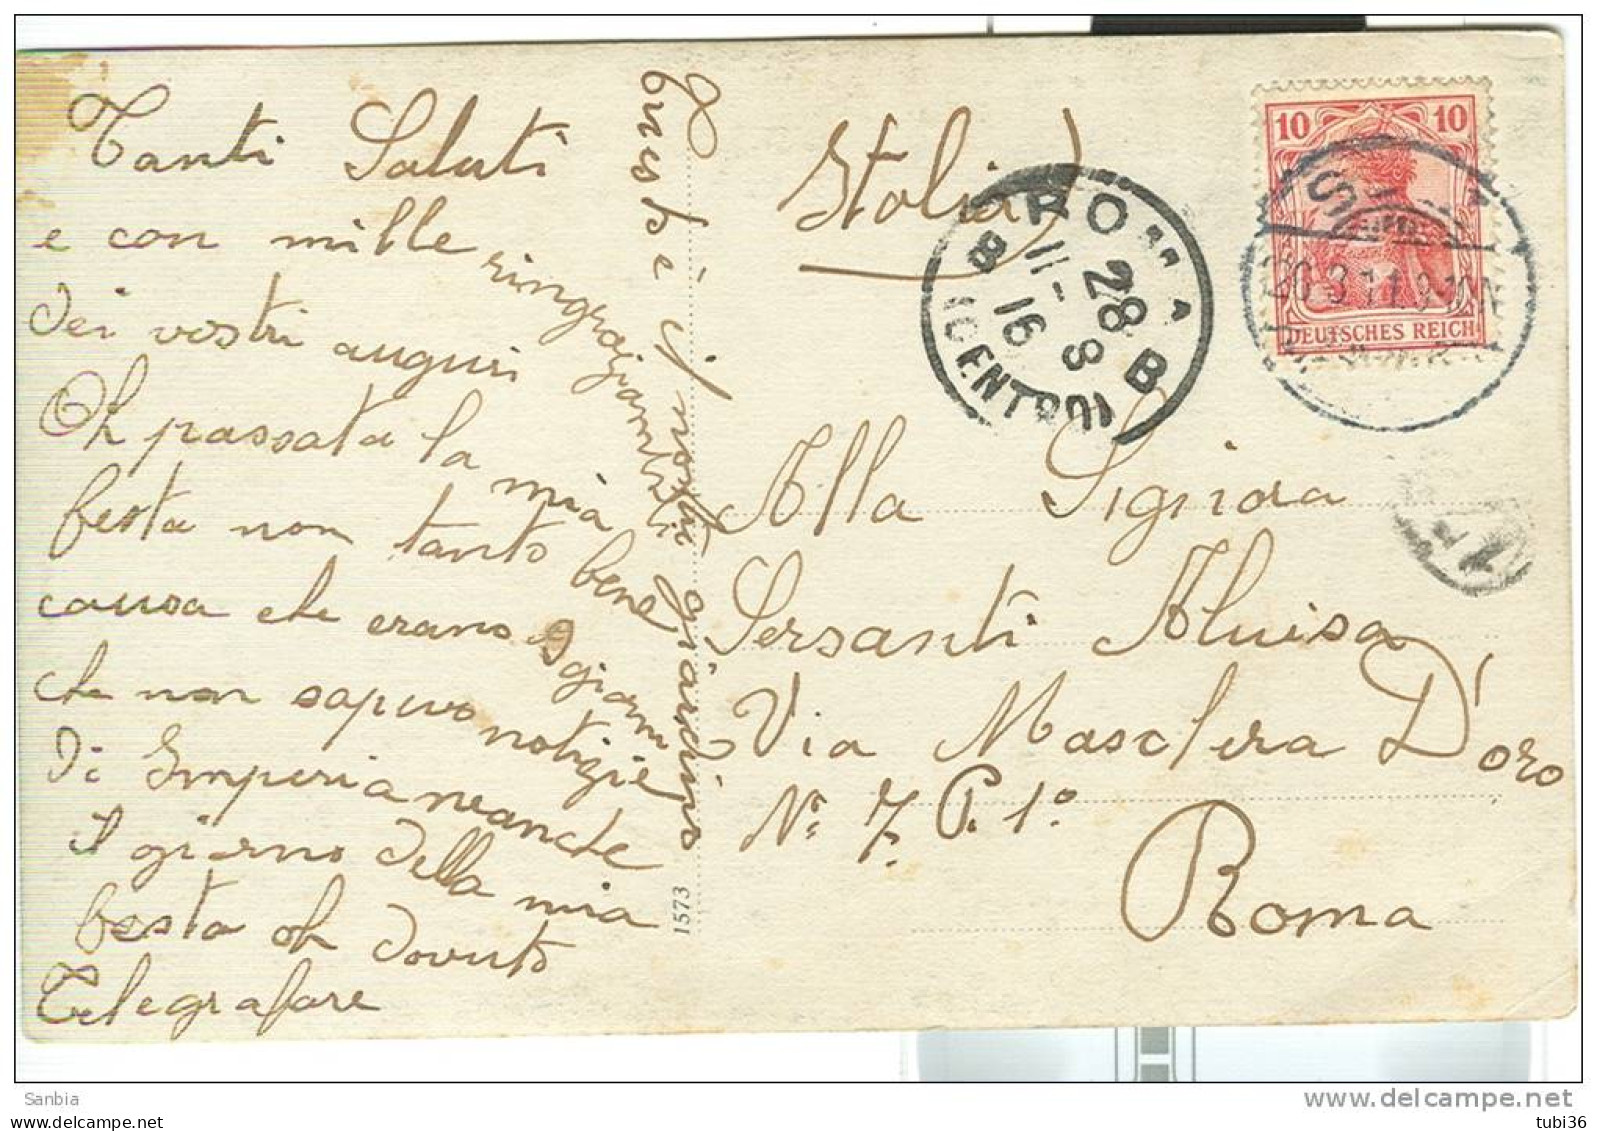 Tanti Saluti
e con mille ringraziamenti
dei vostri auguri
Oh passata la mia
festa non tanto bene
causa che erano 8 giorni
che non sapevo notizie
di Imperia neanche
il giorno della mia
festa oh dovuto
Telegrafare
è il nostri giardino
1573
Italia
10 10
DEUTSCHES REICH
ROMA
(CENTRO)
28 8
11-16
B B
Alla Signora
Sersanti Aluisa
Via Maschera D'oro
N.º 7. P. 1º
Roma
Sanbia
www.delcampe.net
tubi36